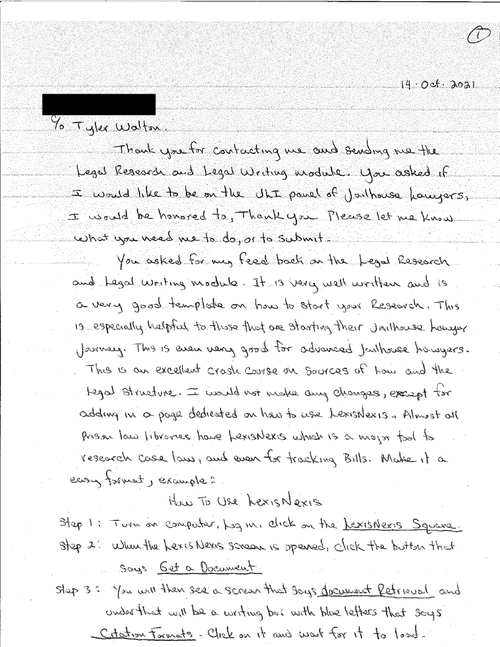 1
14. Oct. 2021
c/o Tyler Walton.
Thank you for contacting me and sending me the
Legal Research and Legal Writing module. You asked if
I would like to be on the JLI panel of Jailhouse Lawyers,
I would be honored to, Thank you. Please let me know
what you need me to do, or to submit.
You asked for my feed back on the Legal Research
and Legal Writing module. It is very well written and is
a very good template on how to start your Research. This
is especially helpful to those that are starting their Jailhouse Lawyer
Journey. This is even very good for advanced Jailhouse Lawyers.
This is an excellent crash course on sources of Law and the
Legal structure. I would not make any changes, except for
adding in a page dedicated on how to use LexisNexis. Almost all
Prison law libraries have LexisNexis which is a major tool to
research case law, and even for tracking Bills. Make it a
easy format, example:
How To Use LexisNexis
Step 1: Turn on computer, Log in. click on the LexisNexis Square.
Step 2: When the LexisNexis screen is opened, click the button that
says Get a Document
Step 3: You will then see a screen that says document Retrieval and
under that will be a writing box with blue letters that says
Citation Formats. Click on it and wait for it to load.